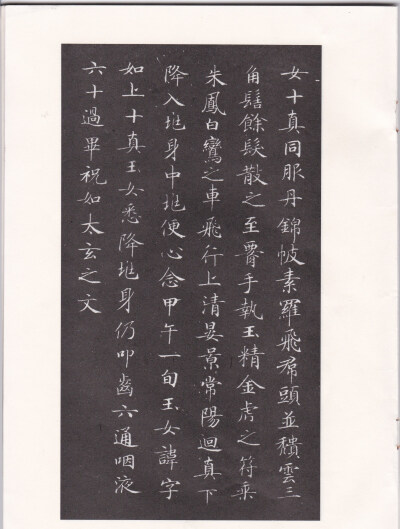 女十真同服丹錦帔素羅飛帬頭並穨雲三
角髻餘髮散之至要手執玉精金虎之符乘
朱鳳白鸞之車飛行上清晏景常陽迴真下
降入地身中地便心念甲午一旬玉女諱字
如上十真玉女悉降地身仍叩齒六通咽液
六十過畢祝如太玄之文